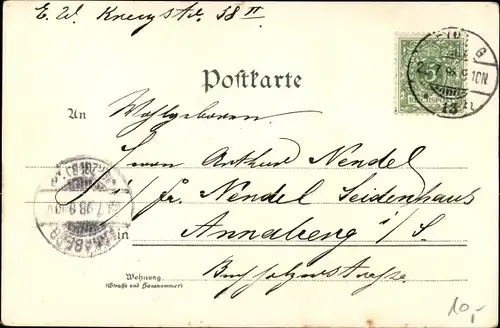 E. W. Kreuzstr. 38 II
Postkarte
An Wohlgeboren
Herrn Arthur Nendel
i/fr. Nendel Seidenhaus
in Annaberg i/S.
Buchholzerstrasse.
Wohnung
(Straße und Hausnummer)
5
REICHSPOST
ANNABERG
10,-